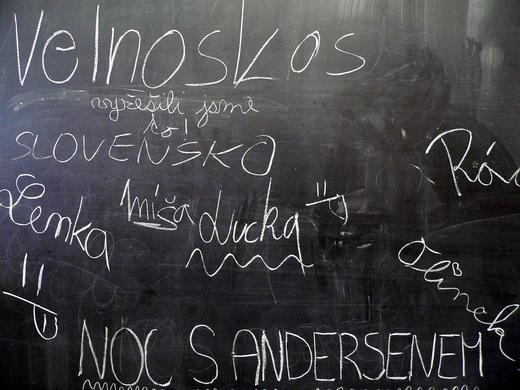 Velnoskos
vyřešili jsme
to!
SLOVENSKO
Lenka
míša
Lucka
NOC S ANDERSENEM